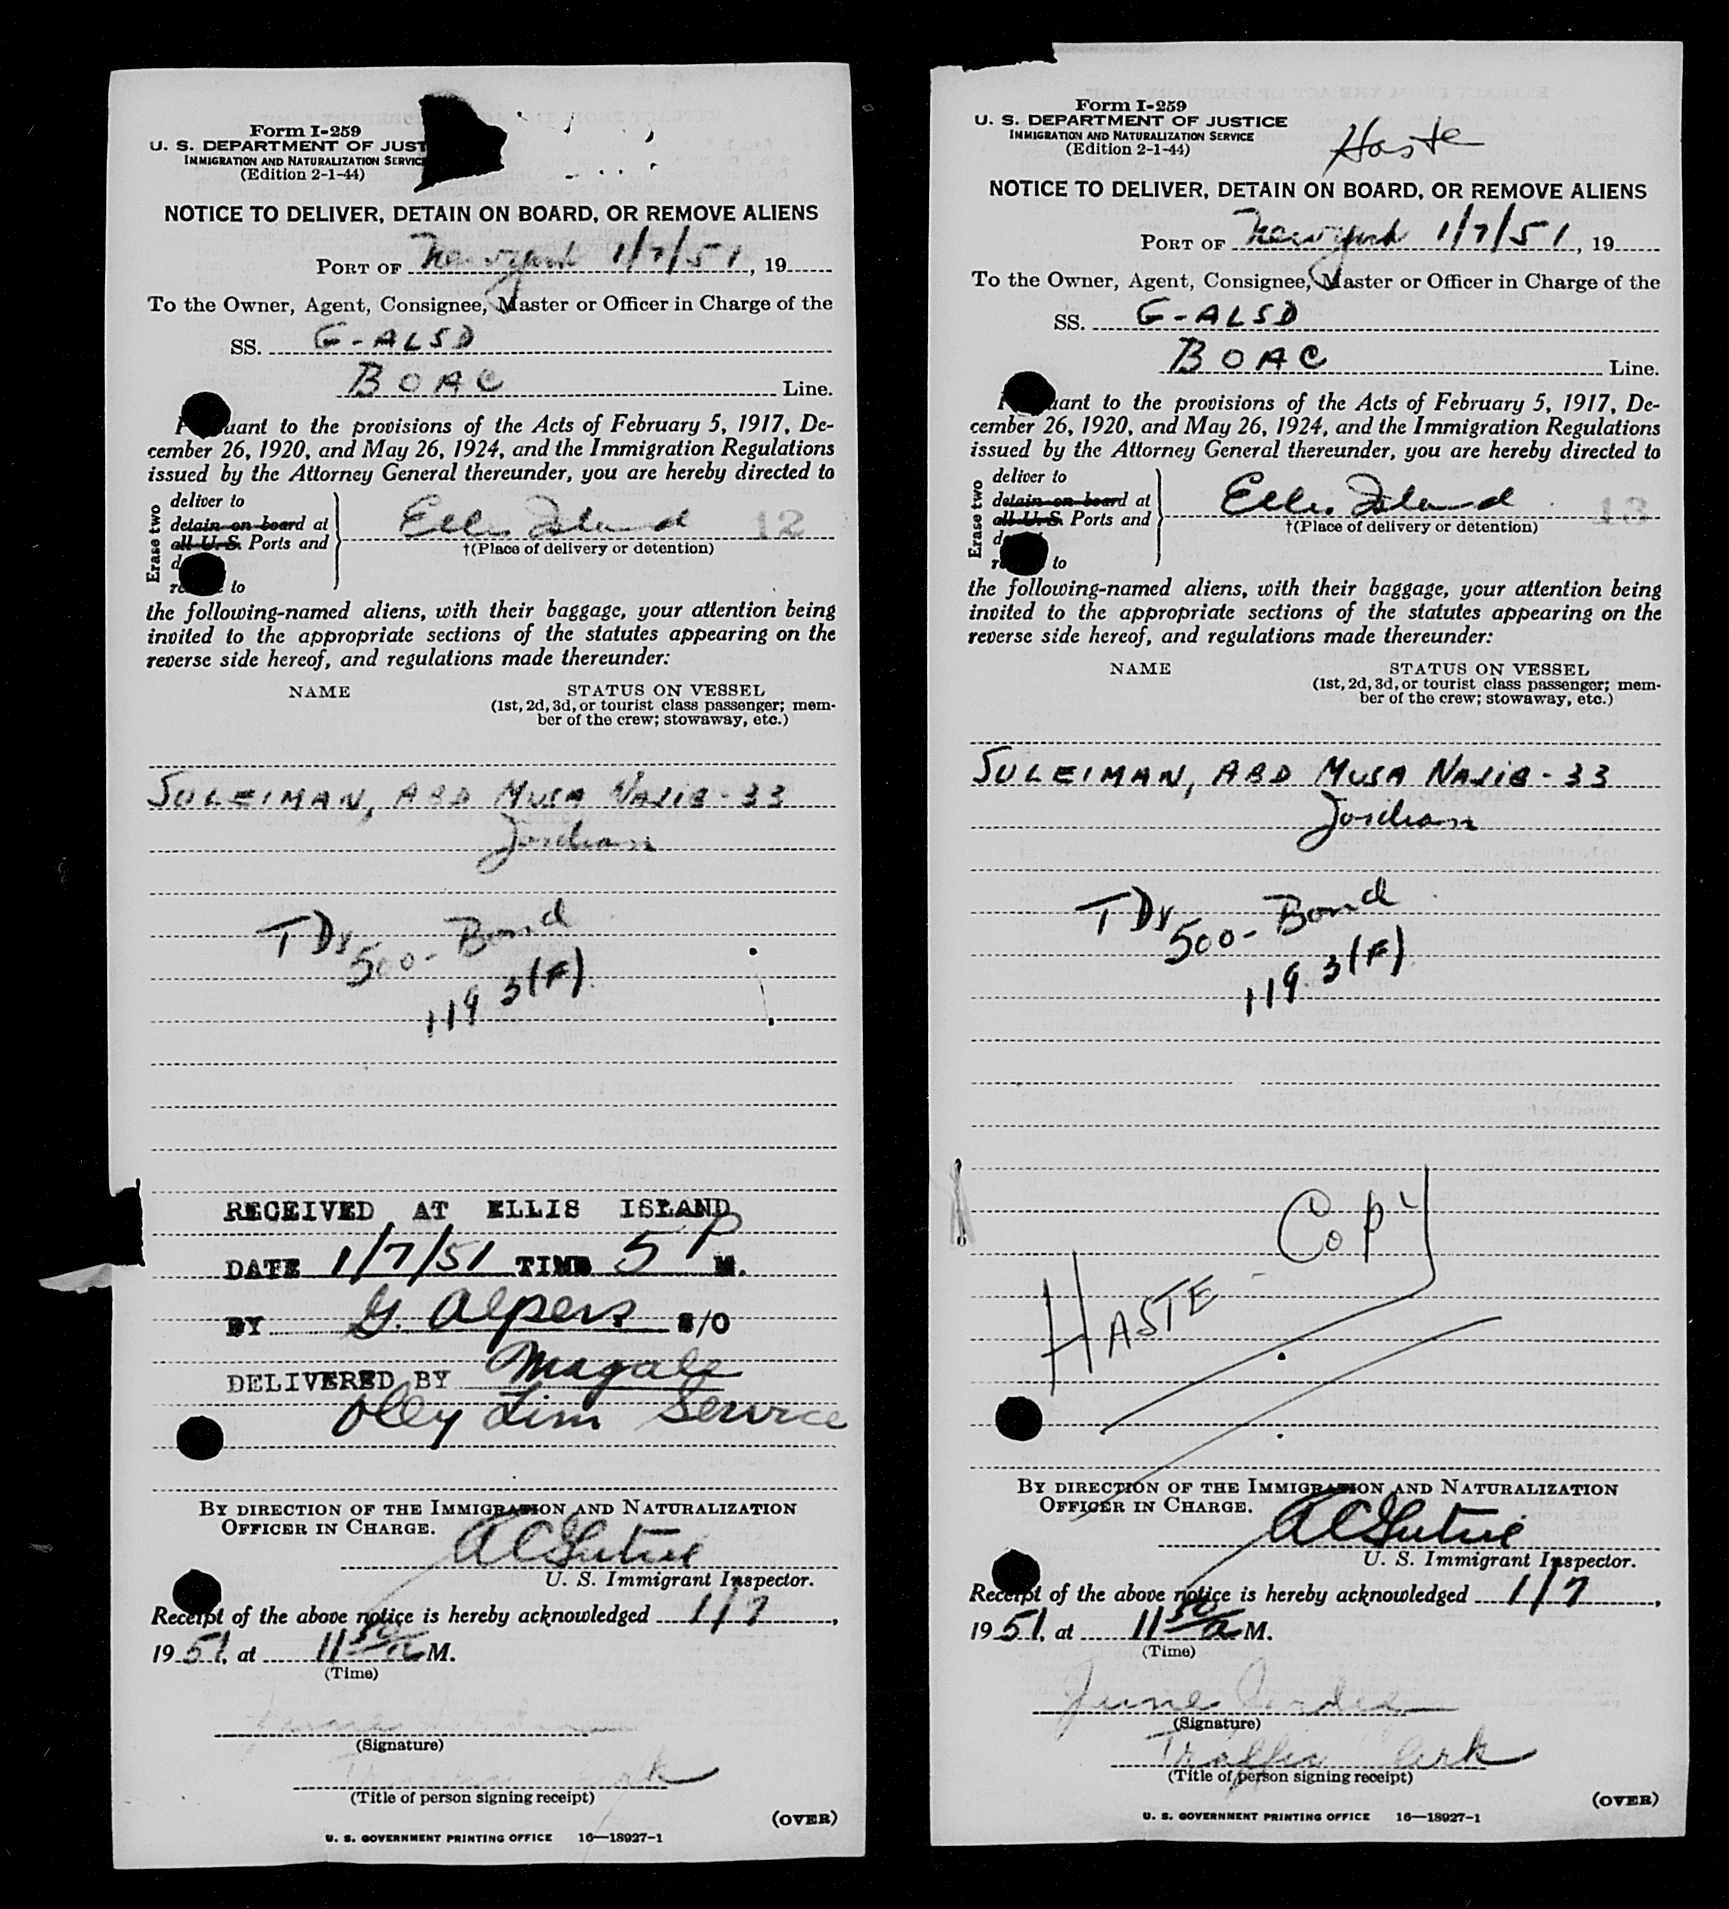 Form I-259
U. S. DEPARTMENT OF JUST
IMMIGRATION AND NATURALIZATION SERVIC
(Edition 2-1-44)
NOTICE TO DELIVER, DETAIN ON BOARD, OR REMOVE ALIENS
PORT OF New York 1/7/51, 19
To the Owner, Agent, Consignee, Master or Officer in Charge of the
SS. G-ALSD
BOAC Line.
P uant to the provisions of the Acts of February 5, 1917, De-
cember 26, 1920, and May 26, 1924, and the Immigration Regulations
issued by the Attorney General thereunder, you are hereby directed to
Erase two
deliver to
detain on board at
all U.S. Ports and
d
re to
Ellis Island 12
†(Place of delivery or detention)
the following-named aliens, with their baggage, your attention being
invited to the appropriate sections of the statutes appearing on the
reverse side hereof, and regulations made thereunder:
NAME STATUS ON VESSEL
(1st, 2d, 3d, or tourist class passenger; mem-
ber of the crew; stowaway, etc.)
SULEIMAN, ABD MUSA NAJIB - 33
Jordan
TDy
500- Bond
119.3(F)
RECEIVED AT ELLIS ISLAND
DATE 1/7/51 TIME 5 P M.
BY G. Alpers S/O
DELIVERED BY Magale
Oley Lim Service
BY DIRECTION OF THE IMMIGRATION AND NATURALIZATION
OFFICER IN CHARGE.
U. S. Immigrant Inspector.
Receipt of the above notice is hereby acknowledged 1/7,
19 51, at 11 50/a M.
(Time)
(Signature)
(Title of person signing receipt)
(OVER)
U. S. GOVERNMENT PRINTING OFFICE 16—18927-1
Form I-259
U. S. DEPARTMENT OF JUSTICE
IMMIGRATION AND NATURALIZATION SERVICE
(Edition 2-1-44)
Haste
NOTICE TO DELIVER, DETAIN ON BOARD, OR REMOVE ALIENS
PORT OF New York 1/7/51, 19
To the Owner, Agent, Consignee, Master or Officer in Charge of the
SS. G-ALSD
BOAC Line.
P uant to the provisions of the Acts of February 5, 1917, De-
cember 26, 1920, and May 26, 1924, and the Immigration Regulations
issued by the Attorney General thereunder, you are hereby directed to
Erase two
deliver to
detain on board at
all U.S. Ports and
d
re to
Ellis Island 13
†(Place of delivery or detention)
the following-named aliens, with their baggage, your attention being
invited to the appropriate sections of the statutes appearing on the
reverse side hereof, and regulations made thereunder:
NAME STATUS ON VESSEL
(1st, 2d, 3d, or tourist class passenger; mem-
ber of the crew; stowaway, etc.)
SULEIMAN, ABD MUSA NAJIB - 33
Jordan
TDy
500- Bond
119.3(F)
HASTE - COPY
BY DIRECTION OF THE IMMIGRATION AND NATURALIZATION
OFFICER IN CHARGE.
U. S. Immigrant Inspector.
Receipt of the above notice is hereby acknowledged 1/7,
19 51, at 11 50/a M.
(Time)
June
(Signature)
Traffic Clerk
(Title of person signing receipt)
(OVER)
U. S. GOVERNMENT PRINTING OFFICE 16—18927-1